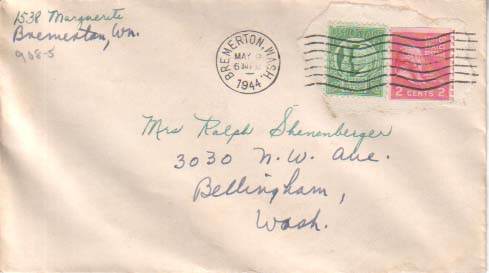 1538 Marguerite
Bremerton, Wn.
908-5
BREMERTON, WASH.
MAY
1944
2 CENTS 2
Mrs Ralph Shenenberger
3030 N.W. Ave.
Bellingham,
Wash.